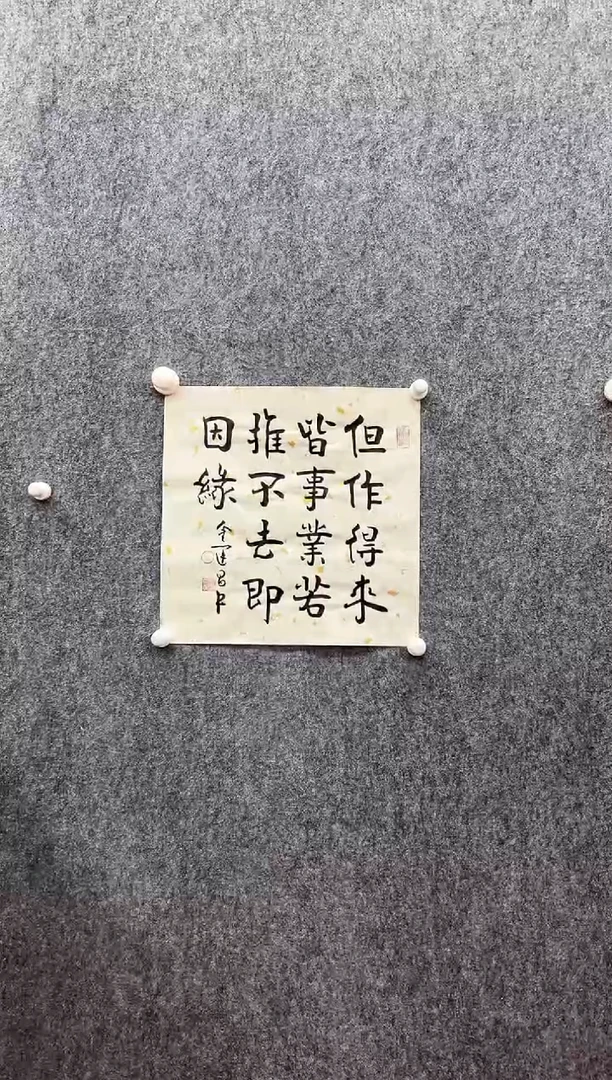 但作得来
皆事業若
推不去即
因緣